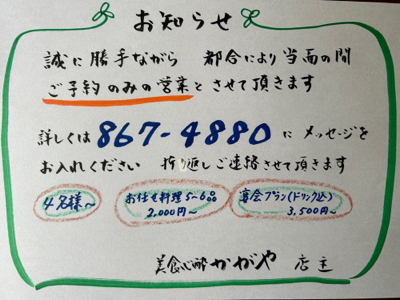 お知らせ
誠に勝手ながら 都合により当面の間
ご予約のみの営業とさせて頂きます
詳しくは 867-4880 に メッセージを
お入れください 折り返しご連絡させて頂きます
4名様~
お任せ料理5~6品
2,000円~
宴会プラン(ドリンク込)
3,500円~
美食心酔 かがや 店主